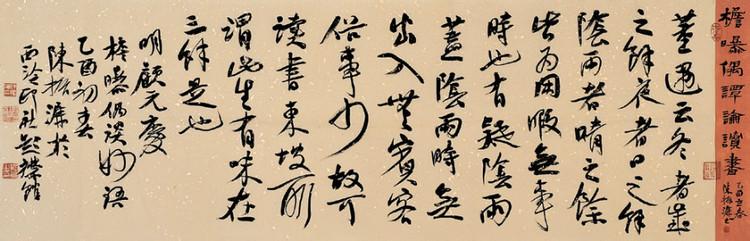 檐曝偶譚論讀書
乙酉 春
陳振濂
董遇云冬者歲
之餘夜者日之餘
陰雨者晴之餘
皆為閑暇無事
時也有疑陰雨
蓋陰雨時無
出入無賓客
俗事少故可
讀書東坡所
謂此生有味在
三餘是也
明顧元慶
檐曝偶談妙語
乙酉初春
陳振濂於
西泠印社